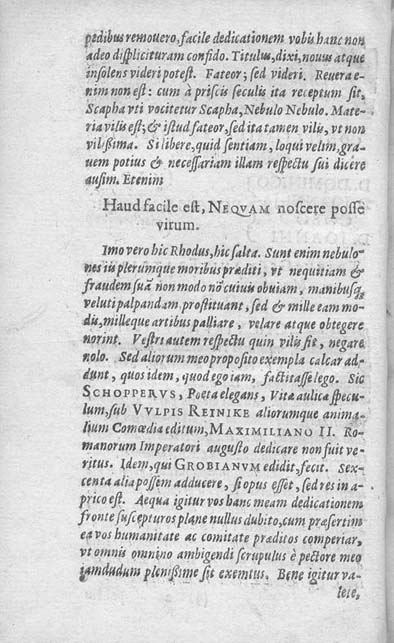 pedibus removero, facile dedicationem vobis hanc non
adeo displicituram confido. Titulus, dixi, novus atque
insolens videri potest. Fateor; sed videri. Revera e-
nim non est: cum à priscis seculis ita receptum sit,
Scapha vti vocitetur Scapha, Nebulo Nebulo. Mate-
ria vilis est; & istud fateor, sed ita tamen vilis, vt non
vilissima. Si libere, quid sentiam, loqui velim, gra-
uem potius & necessariam illam respectu sui dicere
ausim. Etenim
Haud facile est, NEQVAM noscere posse
virum.
Imo vero hic Rhodus, hic salta. Sunt enim nebulo-
nes iis plerumque moribus præditi, vt nequitiam &
fraudem suã non modo nõ cuiuis obuiam, manibusq́;
veluti palpandam, prostituant, sed & mille eam mo-
dis, milleque artibus palliare, velare atque obtegere
norint. Vestri autem respectu quin vilis sit, negare
nolo. Sed aliorum meo proposito exempla calcar ad-
dunt, quos idem, quod ego iam, factitasse lego. Sic
SCHOPPERVS, Poeta elegans, Vitæ aulicæ specu-
lum, sub VVLPIS REINIKE aliorumque anima-
lium Comœdia editum, MAXIMILIANO II. Ro-
manorum Imperatori augusto dedicare non fuit ve-
ritus. Idem, qui GROBIANVM edidit, fecit. Sex-
centa alia possem adducere, si opus esset, sed res in a-
prico est. Aequa igitur vos hanc meam dedicationem
fronte suscepturos plane nullus dubito, cum præsertim
ea vos humanitate ac comitate præditos comperiar,
vt omnis omnino ambigendi scrupulus è pectore meo
iamdudum plenissime sit exemtus. Bene igitur va-
lete,